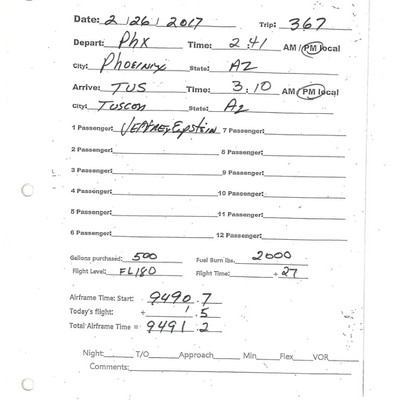 Date: 2 | 26 | 2017 Trip: 367
Depart: Phx Time: 2:41 AM / PM local
City: Phoenix State: AZ
Arrive: TUS Time: 3:10 AM / PM local
City: Tuscon State: AZ
1 Passenger: Jeffrey Epstein 7 Passenger:
2 Passenger: 8 Passenger:
3 Passenger: 9 Passenger:
4 Passenger: 10 Passenger:
5 Passenger: 11 Passenger:
6 Passenger: 12 Passenger:
Gallons purchased: 500 Fuel Burn lbs. 2000
Flight Level: FL180 Flight Time: + 27
Airframe Time: Start: 9490.7
Today's flight: + .5
Total Airframe Time = 9491.2
Night: T/O Approach Min Flex VOR
Comments: